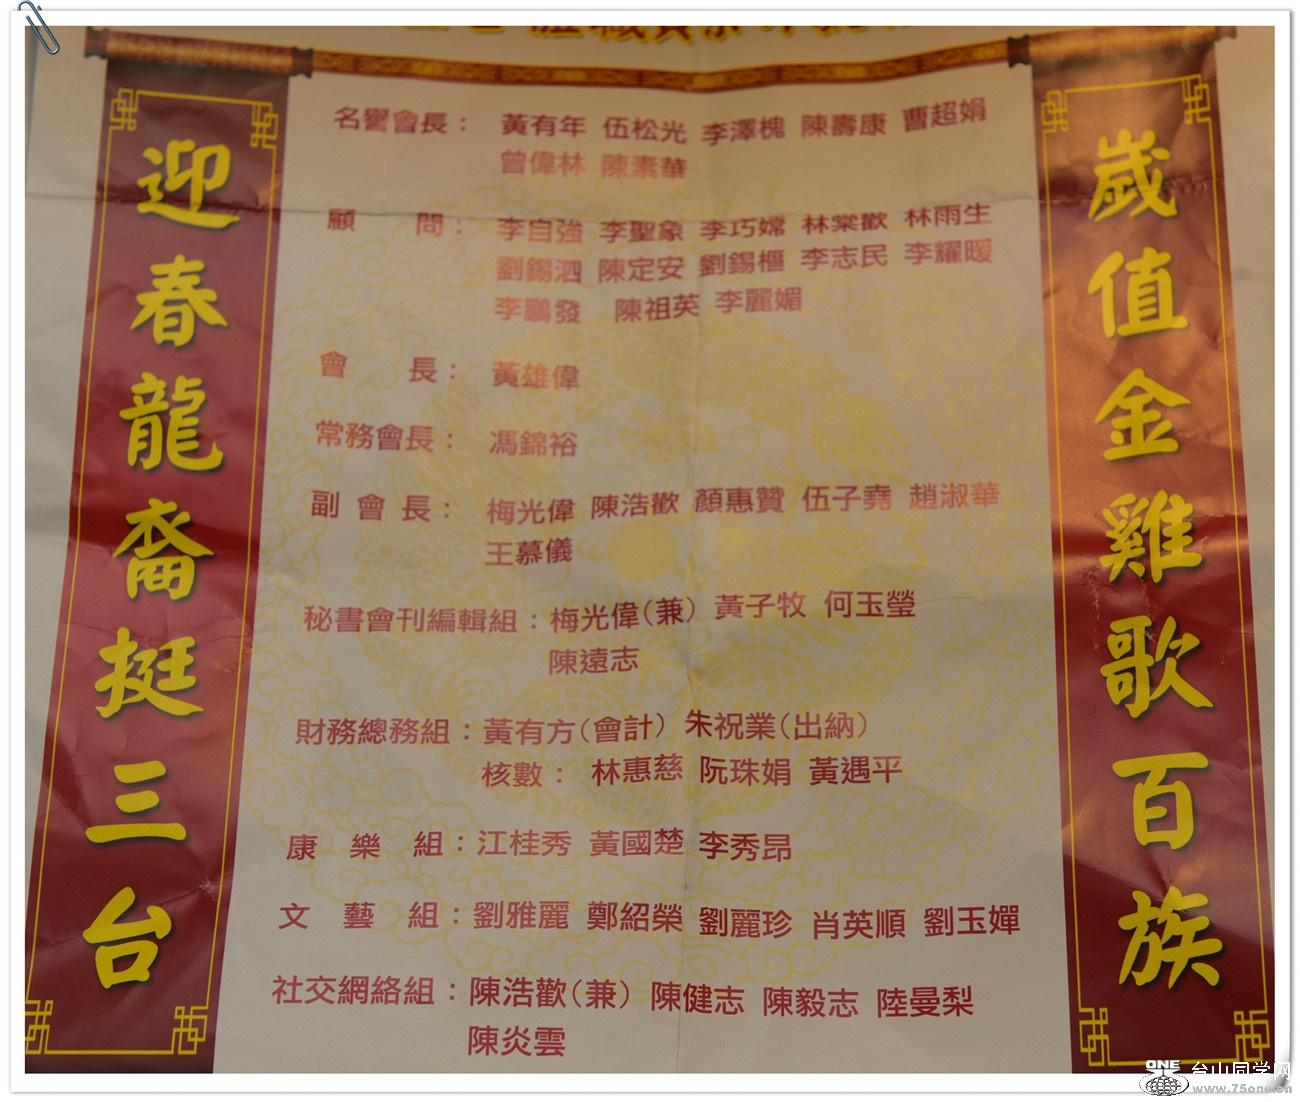 歲值金雞歌百族
迎春龍裔挺三台
名譽會長： 黃有年 伍松光 李澤槐 陳壽康 曹超娟
曾偉林 陳素華
顧問： 李自強 李聖象 李巧嫦 林棠歡 林雨生
劉錫泗 陳定安 劉錫樞 李志民 李耀暖
李鵬發 陳祖英 李麗媚
會長： 黃雄偉
常務會長： 馮錦裕
副會長： 梅光偉 陳浩歡 顏惠贊 伍子堯 趙淑華
王慕儀
秘書會刊編輯組：梅光偉（兼） 黃子牧 何玉瑩
陳遠志
財務總務組：黃有方（會計） 朱祝業（出納）
核數： 林惠慈 阮珠娟 黃遇平
康樂組：江桂秀 黃國楚 李秀昂
文藝組：劉雅麗 鄭紹榮 劉麗珍 肖英順 劉玉嬋
社交網絡組：陳浩歡（兼） 陳健志 陳毅志 陸曼梨
陳炎雲
ONE 台山同学网
www.75one.cn